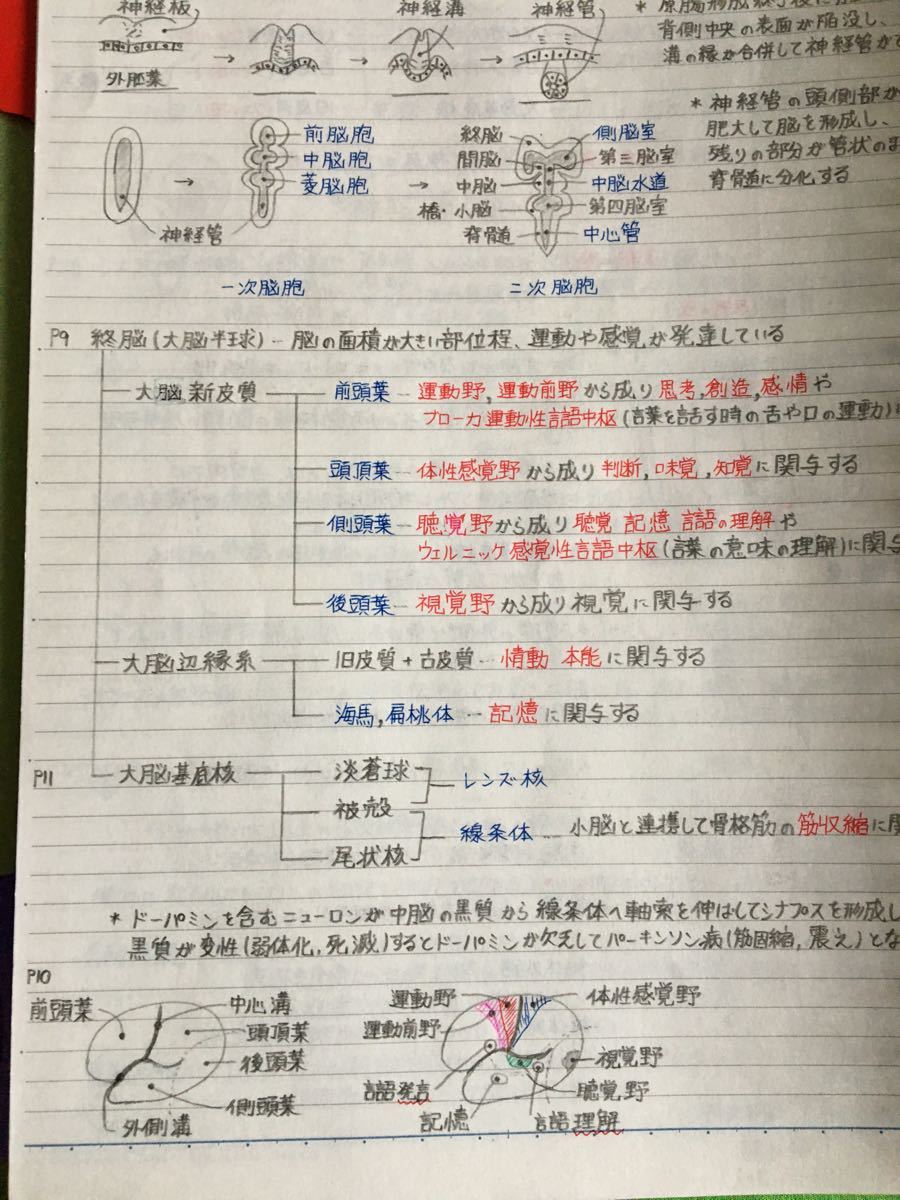 神経板
神経溝
神経管
* 原腸形成終了後に
背側中央の表面が陥没し、
溝の縁が合併して神経管が
外胚葉
* 神経管の頭側部が
肥大して脳を形成し、
残りの部分が管状のま
脊骨道に分化する
前脳胞
中脳胞
菱脳胞
神経管
一次脳胞
終脳
間脳
中脳
橋・小脳
脊骨道
側脳室
第三脳室
中脳水道
第四脳室
中心管
二次脳胞
P9 終脳(大脳半球)--脳の面積が大きい部位程、運動や感覚が発達している
大脳新皮質
前頭葉--運動野,運動前野から成り思考,創造,感情や
ブローカ運動性言語中枢(言葉を話す時の舌や口の運動)に
頭頂葉--体性感覚野から成り判断,味覚,知覚に関与する
側頭葉--聴覚野から成り聴覚 記憶 言語の理解や
ウェルニッケ感覚性言語中枢(言葉の意味の理解)に関与
後頭葉--視覚野から成り視覚に関与する
大脳辺縁系
旧皮質+古皮質--情動 本能に関与する
海馬,扁桃体--記憶に関与する
P11 大脳基底核
淡蒼球
被殻
尾状核
レンズ核
線条体--小脳と連携して骨格筋の筋収縮に関
* ドーパミンを含むニューロンが中脳の黒質から線条体へ軸索を伸ばしてシナプスを形成し
黒質が変性(弱体化,死滅)するとドーパミンが欠乏してパーキンソン病(筋固縮,震え)とな
P10
前頭葉
中心溝
頭頂葉
後頭葉
側頭葉
外側溝
運動野
運動前野
言語発言
記憶
体性感覚野
視覚野
聴覚野
言語理解